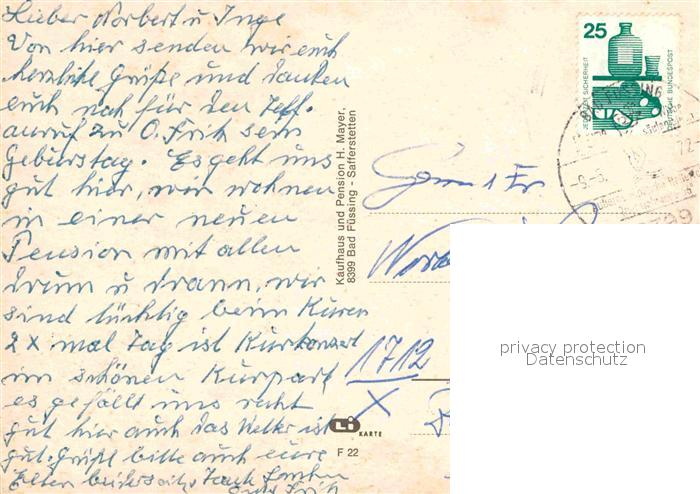 Lieber Norbert u Inge
Von hier senden wir euch
herzliche Grüße und danken
euch noh für den Telf.
anruf zu O. Fritz sein
Geburstag. Es geht uns
gut hier, wir wohnen
in einer neuen
Pension mit allen
drum u drann, wir
sind tüchtig beim Kuren
2 x mal Tag ist Kurkonzert
im schönen Kurpark
es gefällt uns reht
gut hier auch das Wetter ist
gut. Grüßt bitte auch eure
Elter
Kaufhaus und Pension H. Mayer,
8399 Bad Füssing - Safferstetten
25
JEDERZEIT SICHERHEIT
DEUTSCHE BUNDESPOST
1712
X
Li KARTE
F 22
privacy protection
Datenschutz